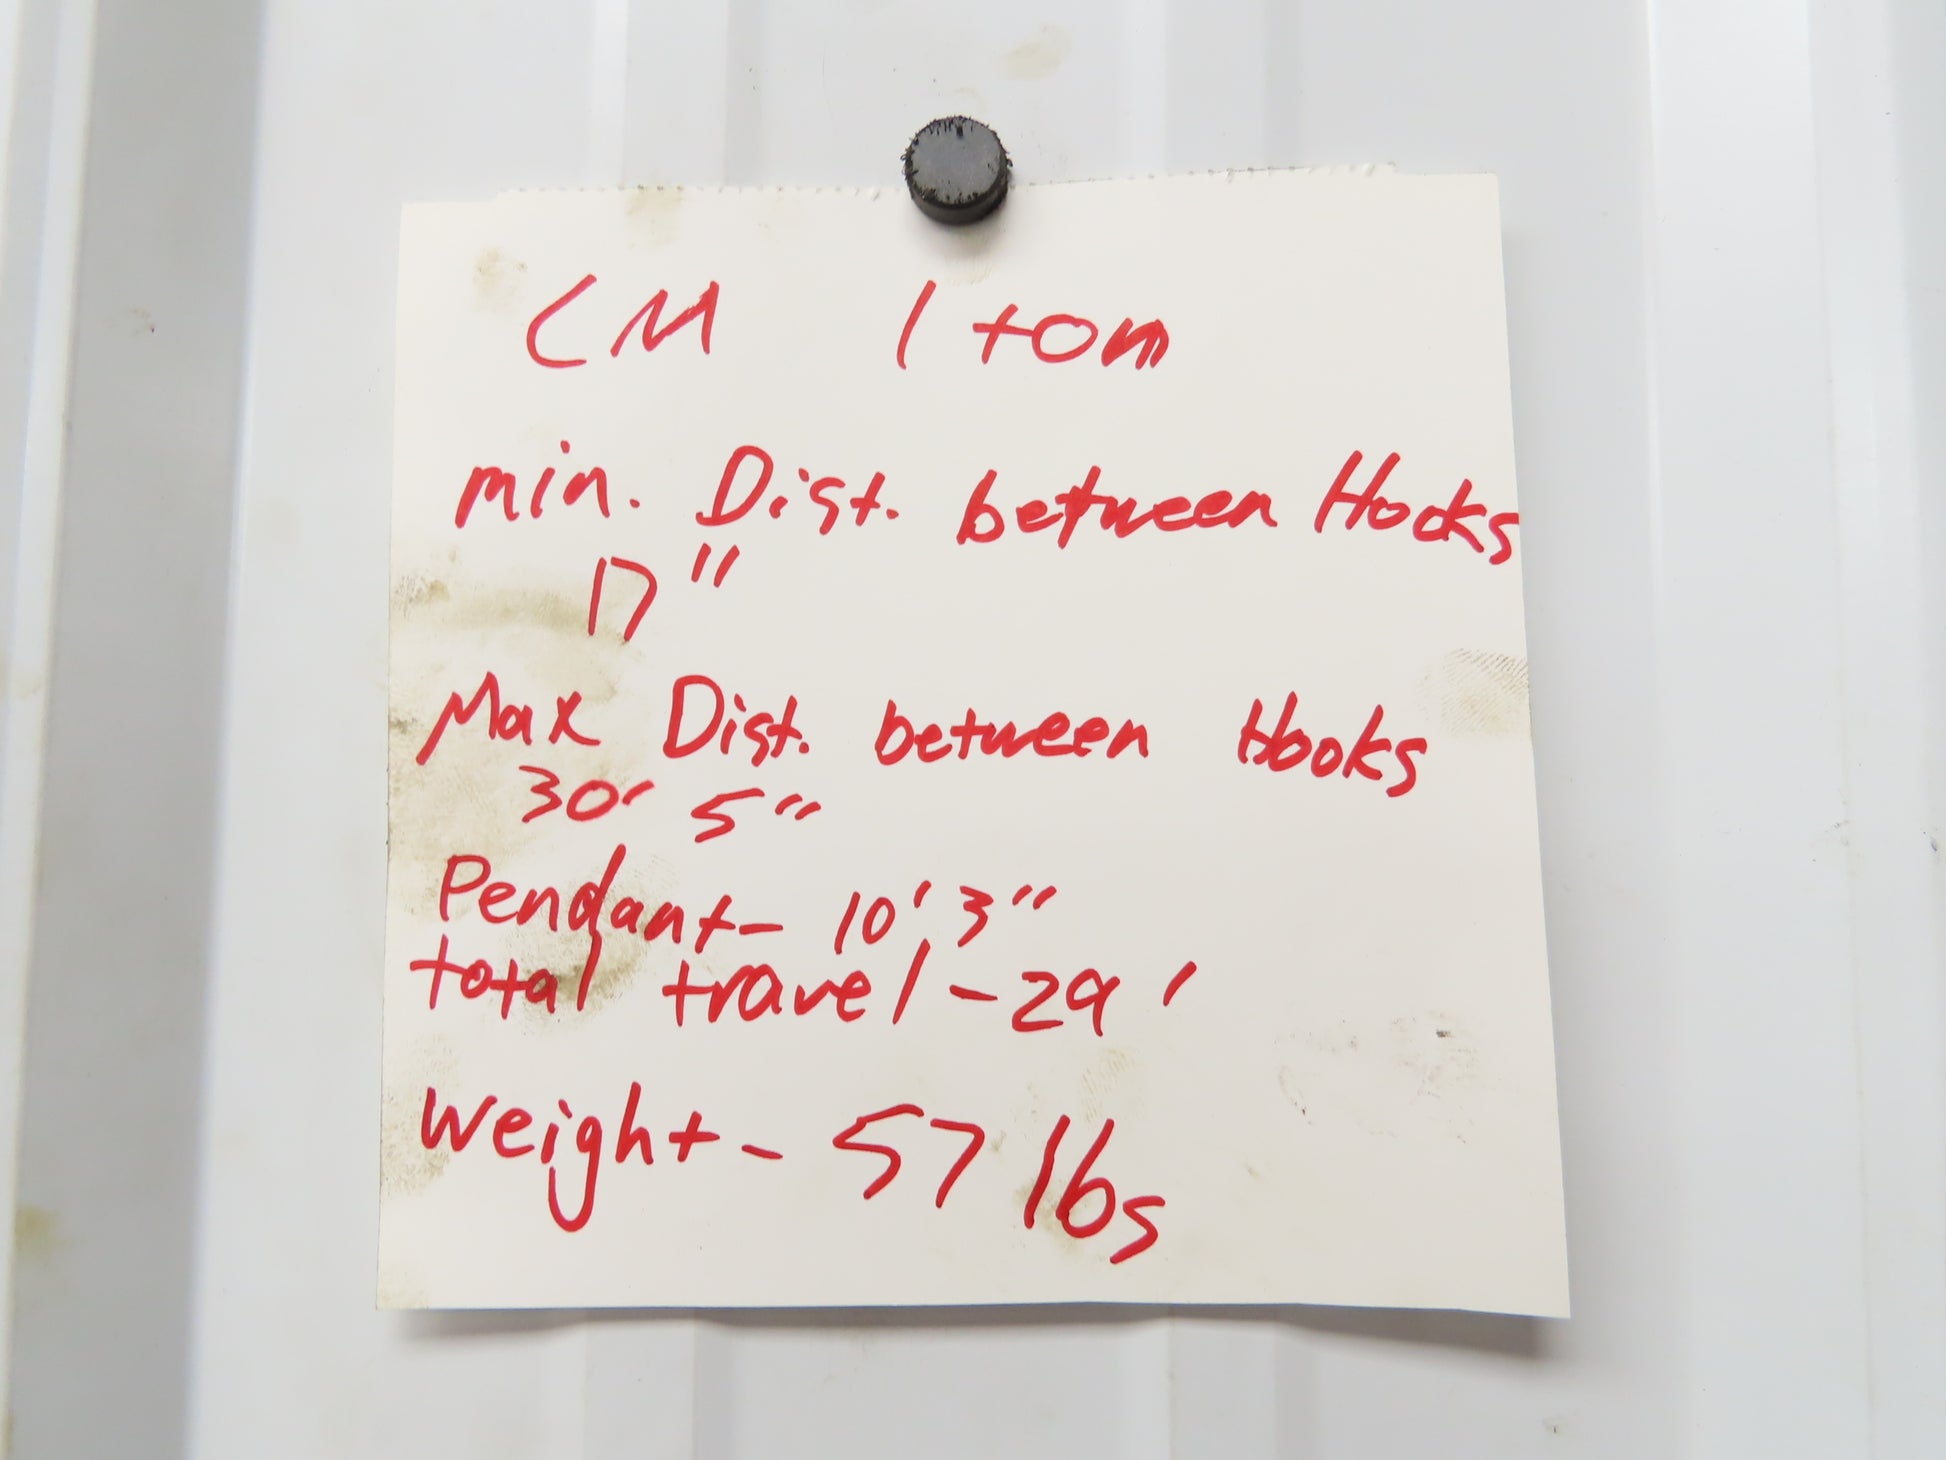 CM 1 ton
min. Dist. between Hooks
17"
Max Dist. between Hooks
30' 5"
Pendant- 10' 3"
total travel - 29'
weight - 57 lbs